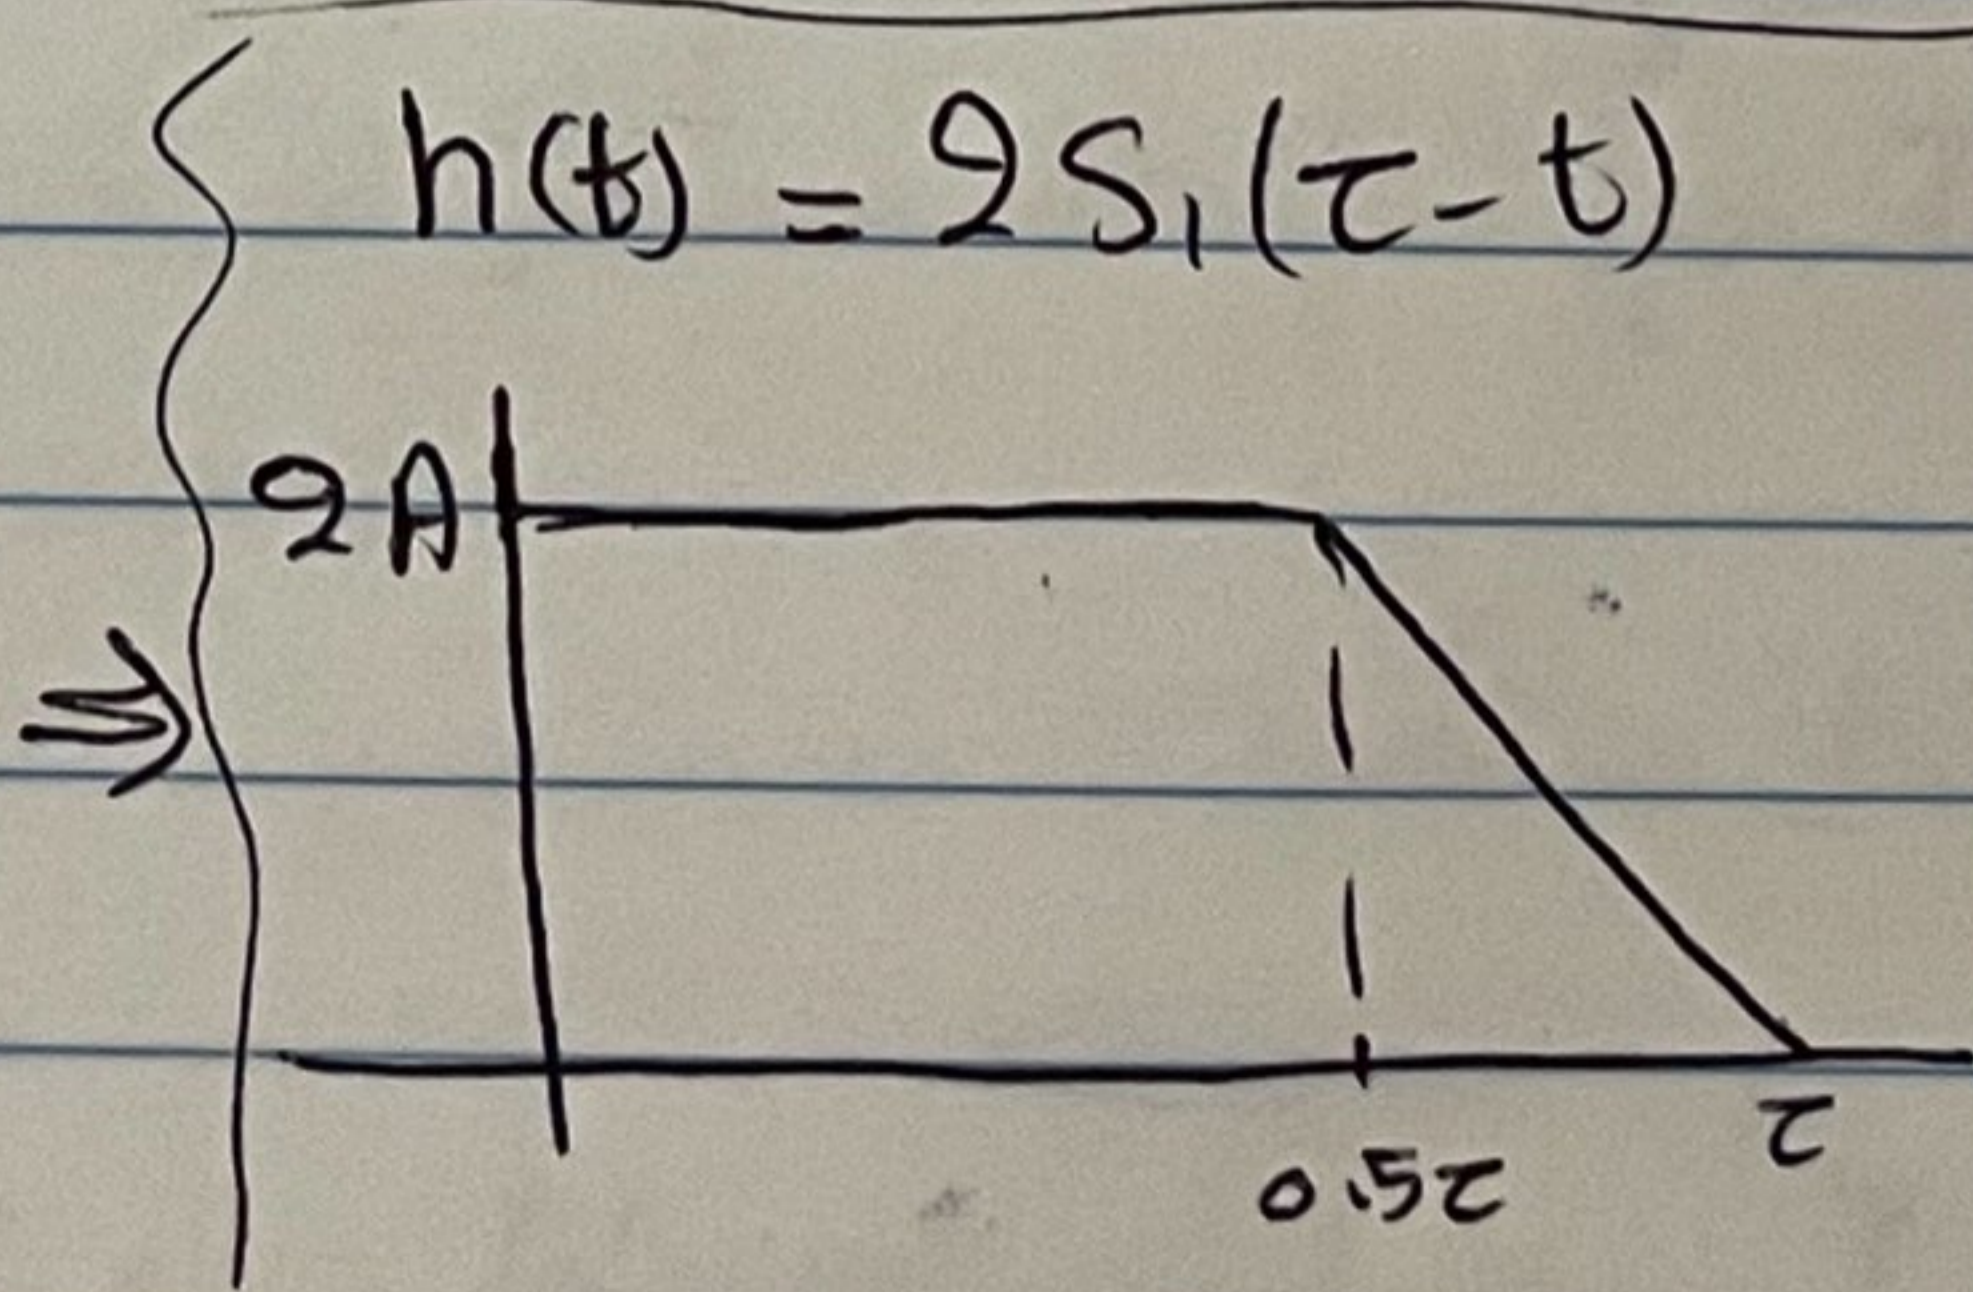 h(t) = 2S₁(τ-t)
2A
⇒
0.5τ
τ